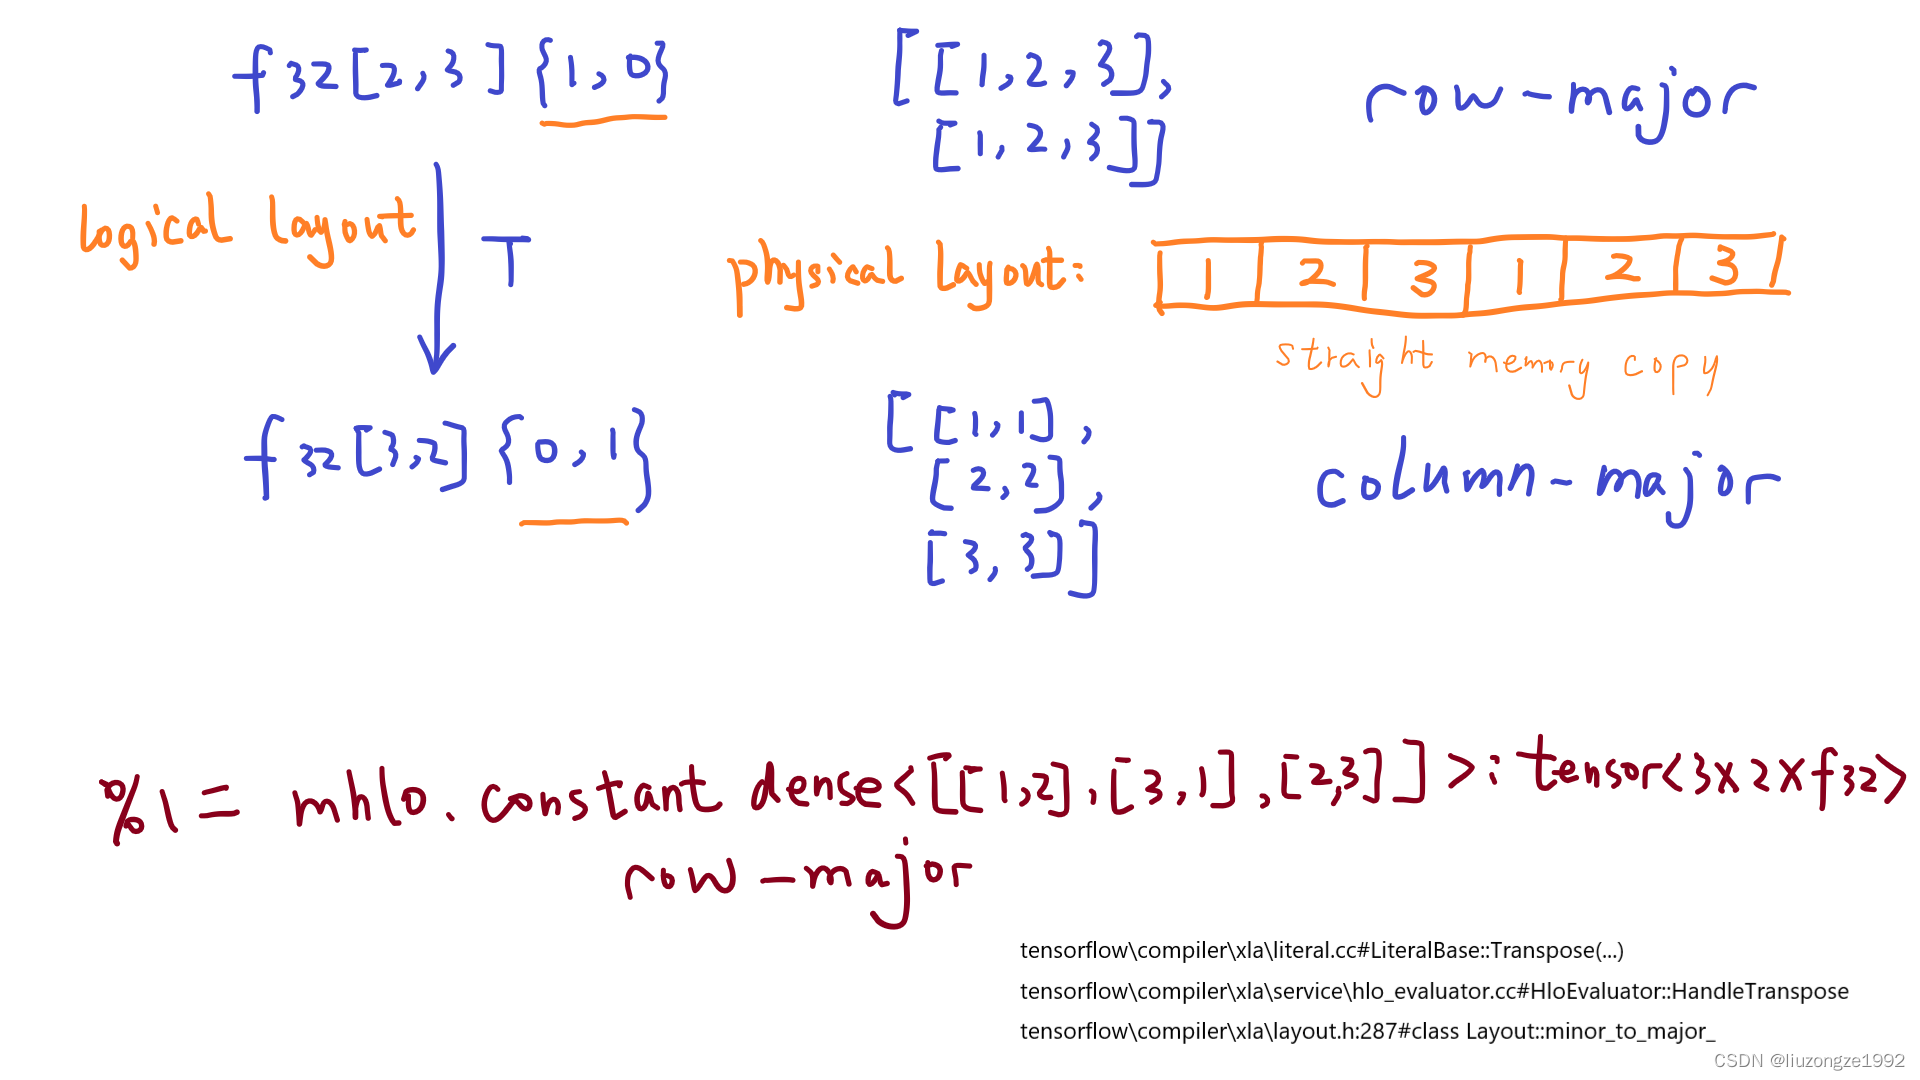 f32[2,3]{1,0}
[[1,2,3],
[1,2,3]]
row-major
logical layout
T
physical layout:
1 2 3 1 2 3
straight memory copy
f32[3,2]{0,1}
[[1,1],
[2,2],
[3,3]]
column-major
%1 = mhlo.constant dense<[[1,2],[3,1],[2,3]]>:tensor<3x2xf32>
row-major
tensorflow\compiler\xla\literal.cc#LiteralBase::Transpose(...)
tensorflow\compiler\xla\service\hlo_evaluator.cc#HloEvaluator::HandleTranspose
tensorflow\compiler\xla\layout.h:287#class Layout::minor_to_major_
CSDN @liuzongze1992